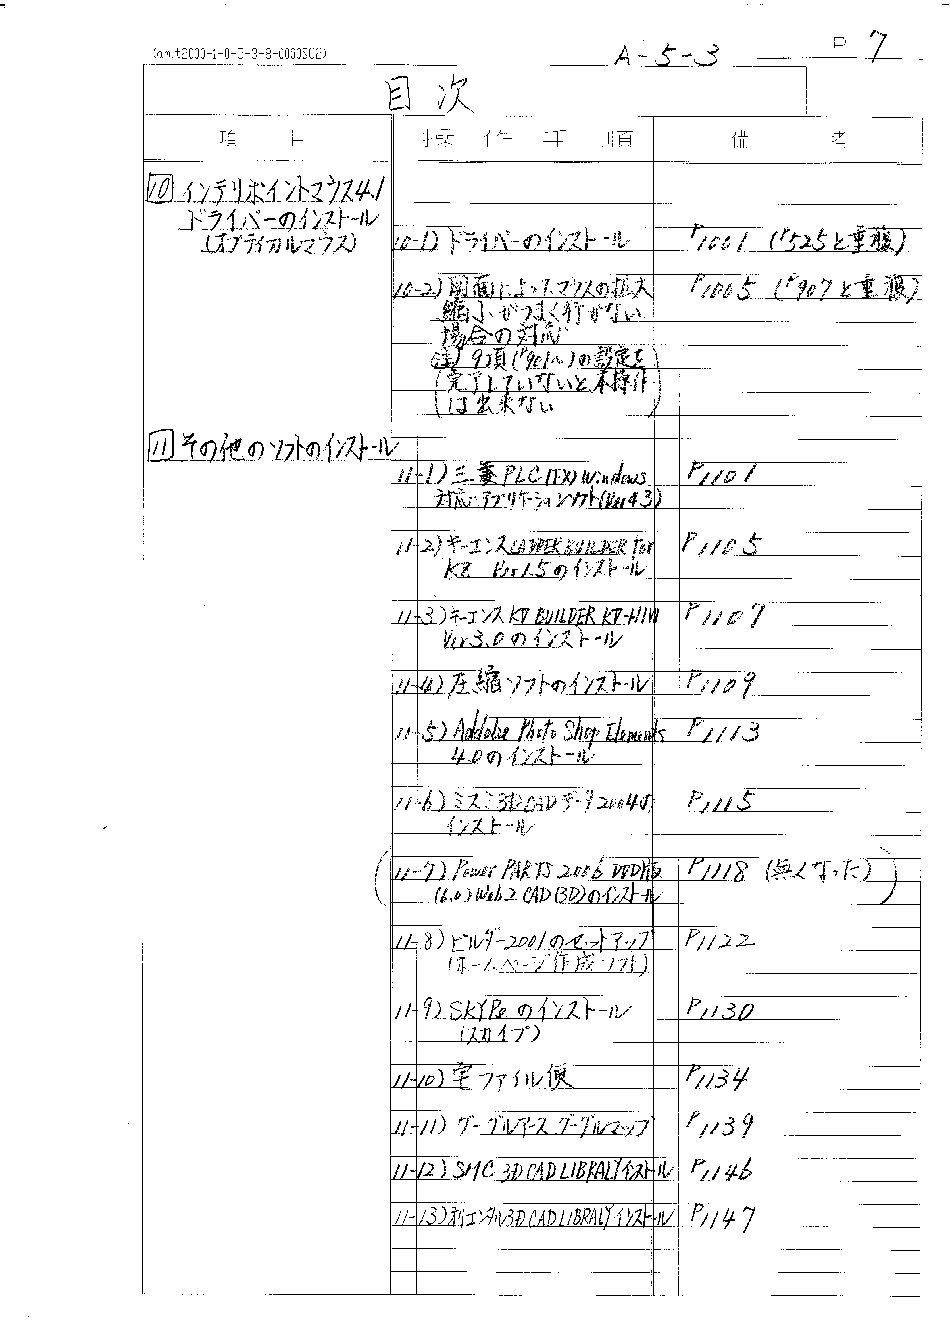 A-5-3
P 7
目次
項 目 操 作 手 順 備 考
10 インテリポイントマウス4.1
ドライバーのインストール
(オプティカルマウス)
10-1) ドライバーのインストール P1001 (P525と重複)
10-2) 図面によってマウスの拡大 P1005 (P907と重複)
縮小がうまく行かない
場合の対応
注) 9項(P901~)の設定を
完了していないと本操作
は出来ない
11 その他のソフトのインストール
11-1) 三菱PLC(FX)Windows P1101
対応アプリケーションソフト(Ver4.3)
11-2) キーエンスLADDER BUILDER for P1105
KZ Ver1.5のインストール
11-3) キーエンスKV BUILDER KV-H1W P1107
Ver3.0のインストール
11-4) 圧縮ソフトのインストール P1109
11-5) Addobe Photo Shop Elements P1113
4.0のインストール
11-6) ミスミ3D CADデータ2004の P1115
インストール
11-7) Power PARTS 2006 DVD版 P1118 (無くなった)
(6.0) Web2 CAD(3D)のインストール
11-8) ビルダー2001のセットアップ P1122
(ホームページ作成ソフト)
11-9) SKYPeのインストール P1130
(スカイプ)
11-10) 宅ファイル便 P1134
11-11) グーグルアース グーグルマップ P1139
11-12) SMC 3D CAD LIBRALYインストール P1146
11-13) オリエンタル3D CAD LIBRALYインストール P1147